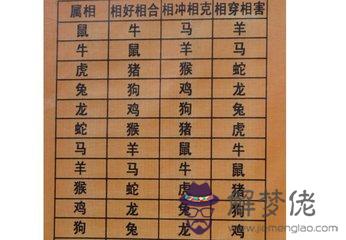 属相 相好相合 相冲相克 相穿相害
鼠 牛 马 羊
牛 鼠 羊 马
虎 猪 猴 蛇
兔 狗 鸡 龙
龙 鸡 狗 兔
蛇 猴 猪 虎
马 羊 鼠 牛
羊 马 牛 鼠
猴 蛇 虎 猪
鸡 龙 兔 狗
狗 兔 龙 鸡
解梦佬